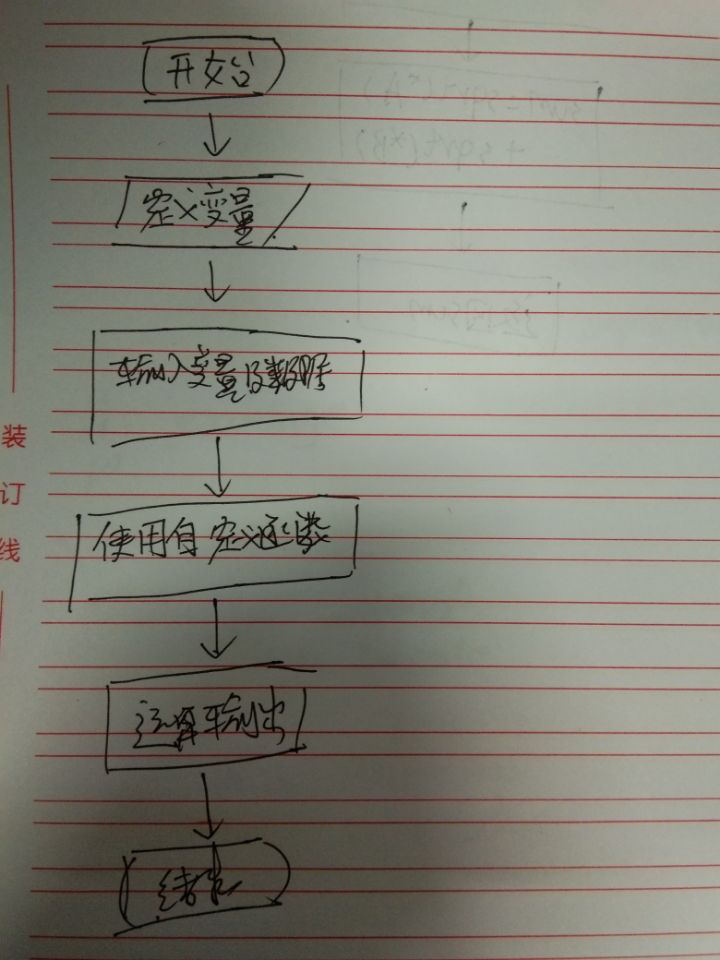 开始
定义变量
输入变量及数据
使用自定义函数
运算输出
结束
装
订
线